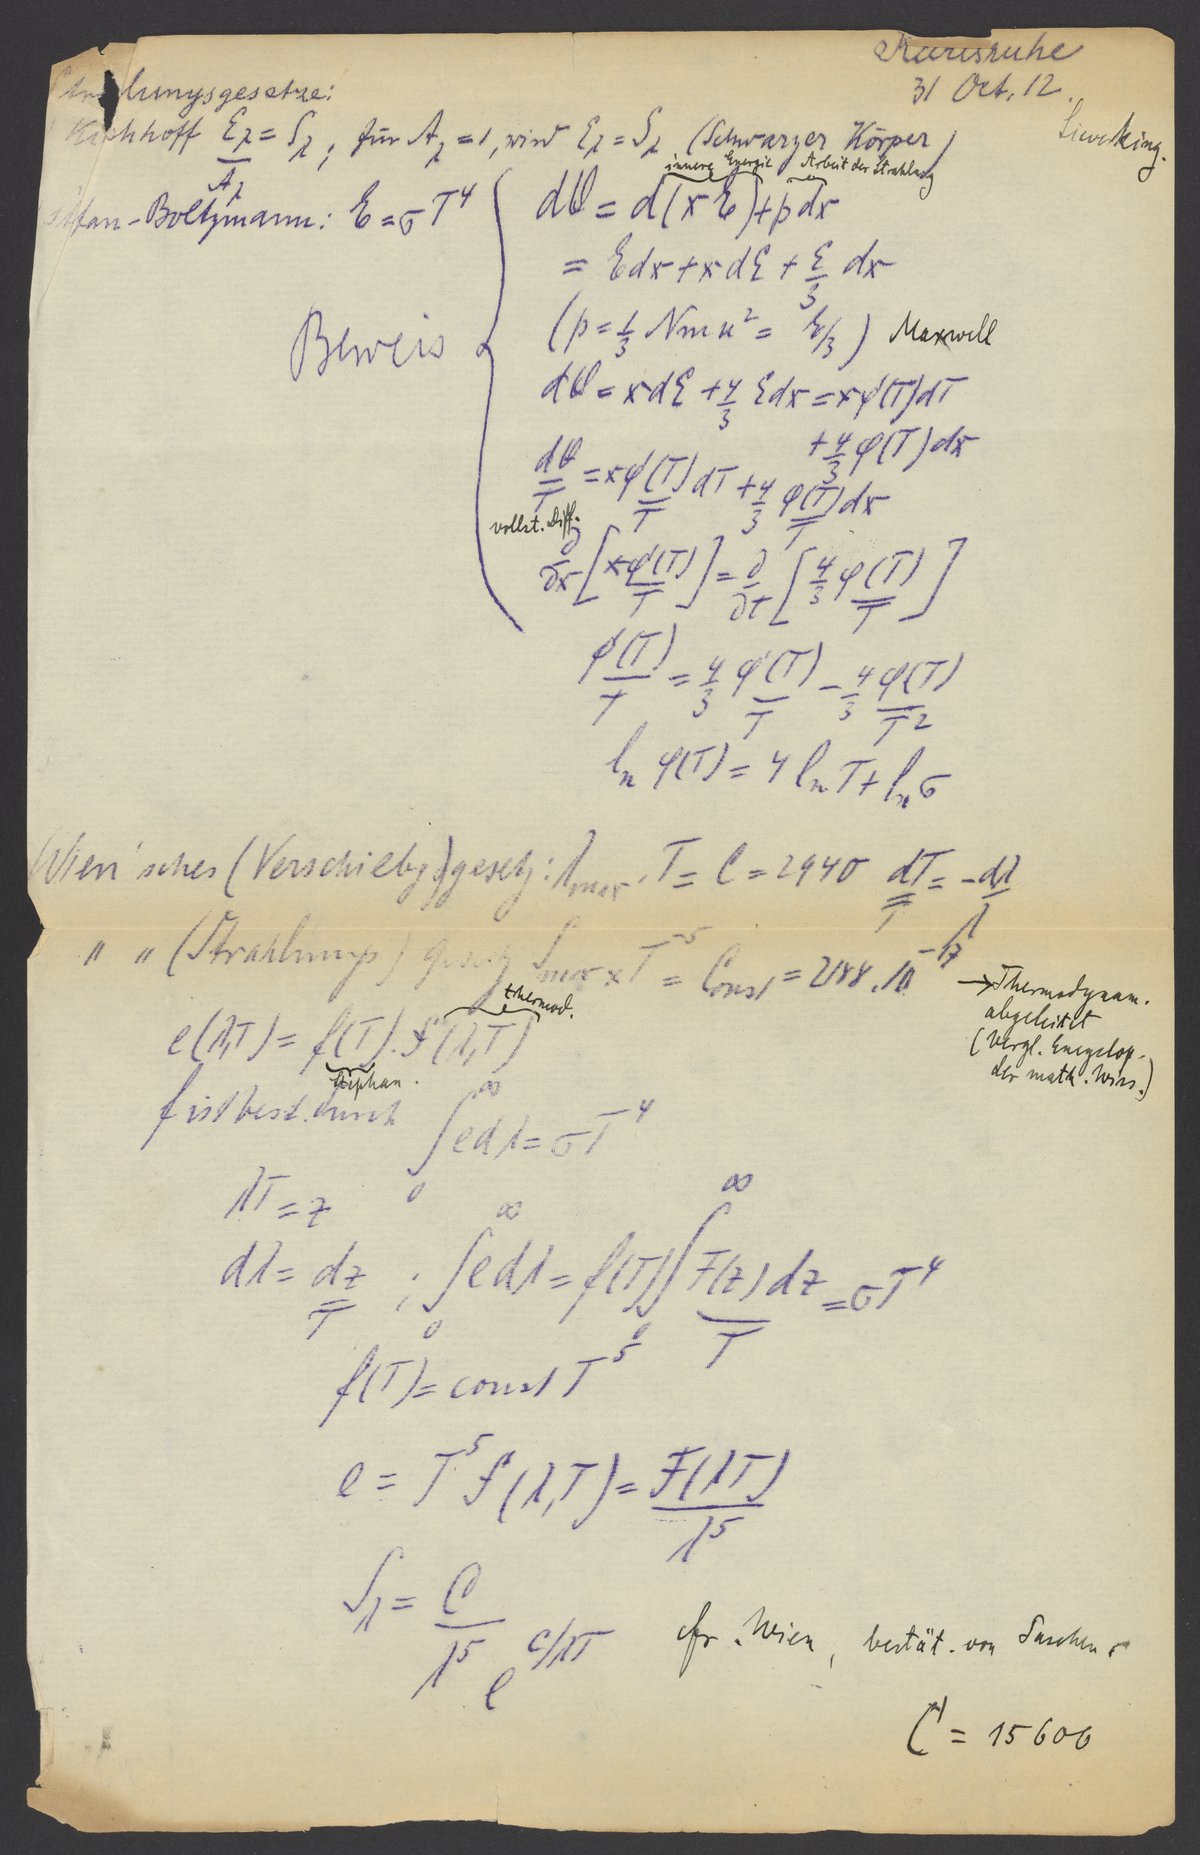 Karlsruhe
31 Oct. 12.
Sieveking.
Strahlungsgesetze:
Kirchhoff E_λ/A_λ = S_λ, für A_λ = 1, wird E_λ = S_λ (Schwarzer Körper)
innere Energie Arbeit der Strahlung
Stefan-Boltzmann: E = σT⁴
dQ = d(xE) + p dx
= E dx + x dE + E/3 dx
Beweis
(p = 1/3 N m u² = E/3) Maxwell
dQ = x dE + 4/3 E dx = x φ'(T) dT
+ 4/3 φ(T) dx
dQ/T = x φ'(T)/T dT + 4/3 φ(T)/T dx
vollst. Diff.
∂/∂x [x φ'(T)/T] = ∂/∂T [4/3 φ(T)/T]
φ'(T)/T = 4/3 φ'(T)/T − 4/3 φ(T)/T²
ln φ(T) = 4 ln T + ln σ
Wien'sches (Verschiebgs)gesetz: λ_max · T = C = 2940 dT/T = −dλ/λ
" " (Strahlungs) gesetz S_max × T⁻⁵ = Const = 2188 · 10⁻¹⁷
→ Thermodynam.
abgeleitet
(Vergl. Encyclop.
der math. Wiss.)
thermod.
e(λ,T) = f(T) · F(λ,T)
Stephan.
f ist best. durch ∫₀^∞ e dλ = σT⁴
λT = z
dλ = dz/T ; ∫₀^∞ e dλ = f(T) ∫₀^∞ F(z)/T dz = σT⁴
f(T) = const T⁵
e = T⁵ F(λ,T) = F(λT)/λ⁵
S_λ = C/λ⁵ e^{c/λT} fr. Wien, bestät. von Paschen
C = 15600